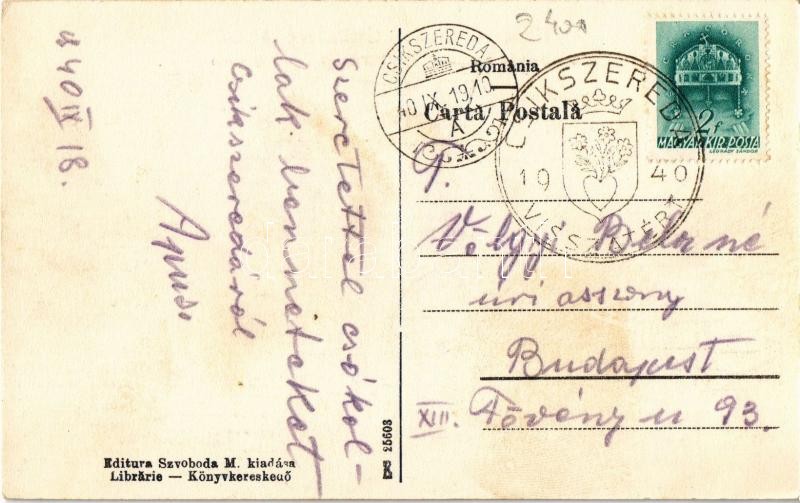 2400
România
Carta Postală
CSIKSZEREDA
40 IX 19 10
A
CSIKSZEREDA
19 40
VISSZATÉRT
2f
MAGYAR KIR. POSTA
LÉGRÁDY SÁNDOR
940 IX 18.
Szeretettel csókol-
lak benneteket
Csikszeredáról
Apus
T.
Völgyi Béláné
úri asszony
Budapest
XIII. Fövény u 93.
25603
Editura Szvoboda M. kiadása
Librărie — Könyvkereskedő